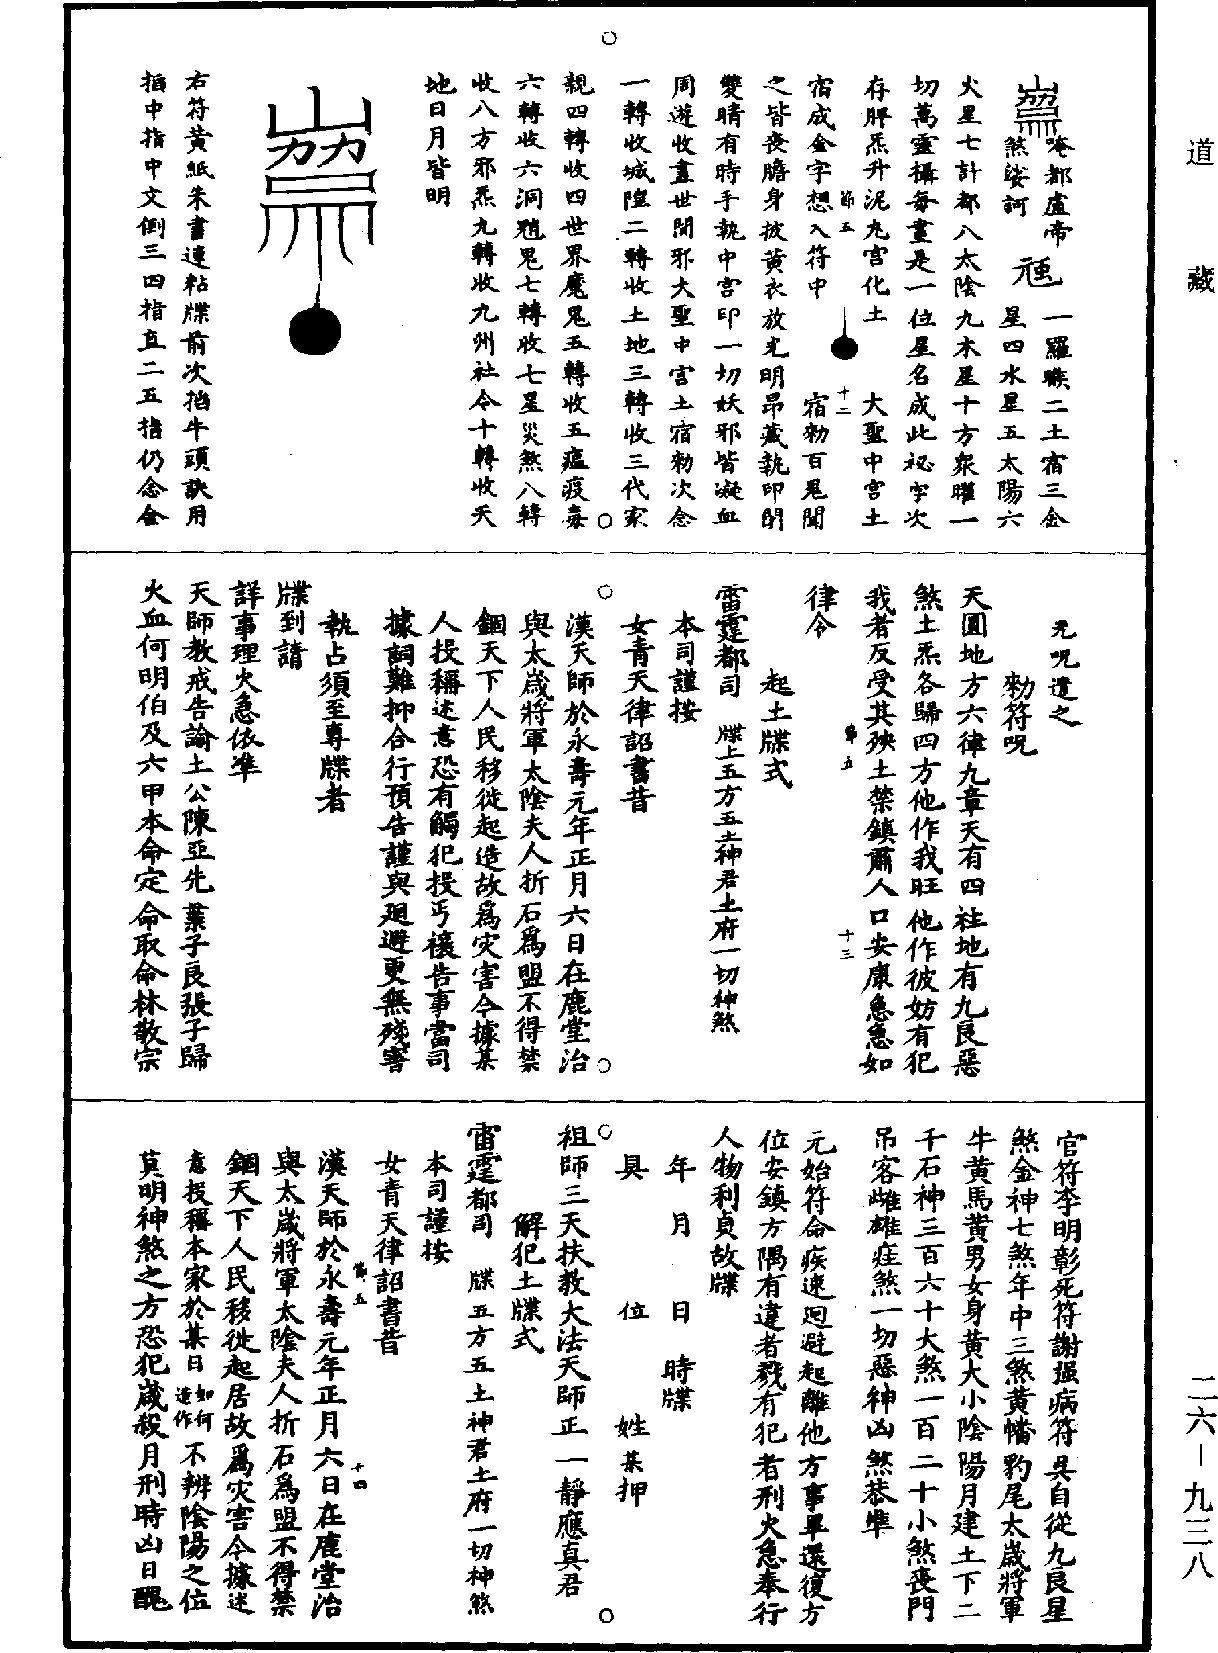 道藏
唵都盧帝
煞娑訶
一羅睺二土宿三金
星四水星五太陽六
火星七計都八太陰九木星十方衆曜一
切萬靈攝每畫是一位星名成此祕字次
存脾炁升泥丸宮化土
大聖中宮土
節五
十二
宿成金字想入符中
宿勑百鬼聞
之皆喪膽身披黃衣放光明昂藏執印閉
雙睛有時手執中宮印一切妖邪皆凝血
周遊收畫世間邪大聖中宮土宿勑次念
一轉收城隍二轉收土地三轉收三代家
親四轉收四世界魔鬼五轉收五瘟疫毒
六轉收六洞魈鬼七轉收七星災煞八轉
收八方邪炁九轉收九州社令十轉收天
地日月皆明
右符黃紙朱書連粘牒前次掐牛頭訣用
指中指中文倒三四指直二五指仍念金
光呪遣之
勑符呪
天圓地方六律九章天有四社地有九良惡
煞土炁各歸四方他作我旺他作彼妨有犯
我者反受其殃土禁鎮肅人口安康急急如
節五
十三
律令
起土牒式
雷霆都司 牒上五方五土神君土府一切神煞
本司謹按
女青天律詔書昔
漢天師於永壽元年正月六日在鹿堂治
與太歲將軍太陰夫人折石爲盟不得禁
錮天下人民移徙起造故爲灾害今據某
人投稱述意恐有觸犯投丐禳告事當司
據詞難抑合行預告謹與廻避更無殘害
執占須至專牒者
牒到請
詳事理火急依準
天師教戒告諭土公陳亞先葉子良張子歸
火血何明伯及六甲本命定命取命林敬宗
官符李明彰死符謝搵病符吳自從九良星
煞金神七煞年中三煞黃幡豹尾太歲將軍
牛黃馬黃男女身黃大小陰陽月建土下二
千石神三百六十大煞一百二十小煞喪門
吊客雌雄疰煞一切惡神凶煞恭準
元始符命疾速廻避起離他方事畢還復方
位安鎮方隅有違者戮有犯者刑火急奉行
人物利貞故牒
年 月 日 時牒
具 位 姓 某押
祖師三天扶教大法天師正一靜應真君
解犯土牒式
雷霆都司 牒五方五土神君土府一切神煞
本司謹按
女青天律詔書昔
節五
十四
漢天師於永壽元年正月六日在鹿堂治
與太歲將軍太陰夫人折石爲盟不得禁
錮天下人民移徙起居故爲灾害今據述
意投稱本家於某日如何造作不辨陰陽之位
莫明神煞之方恐犯歲殺月刑時凶日醜
二六—九三八